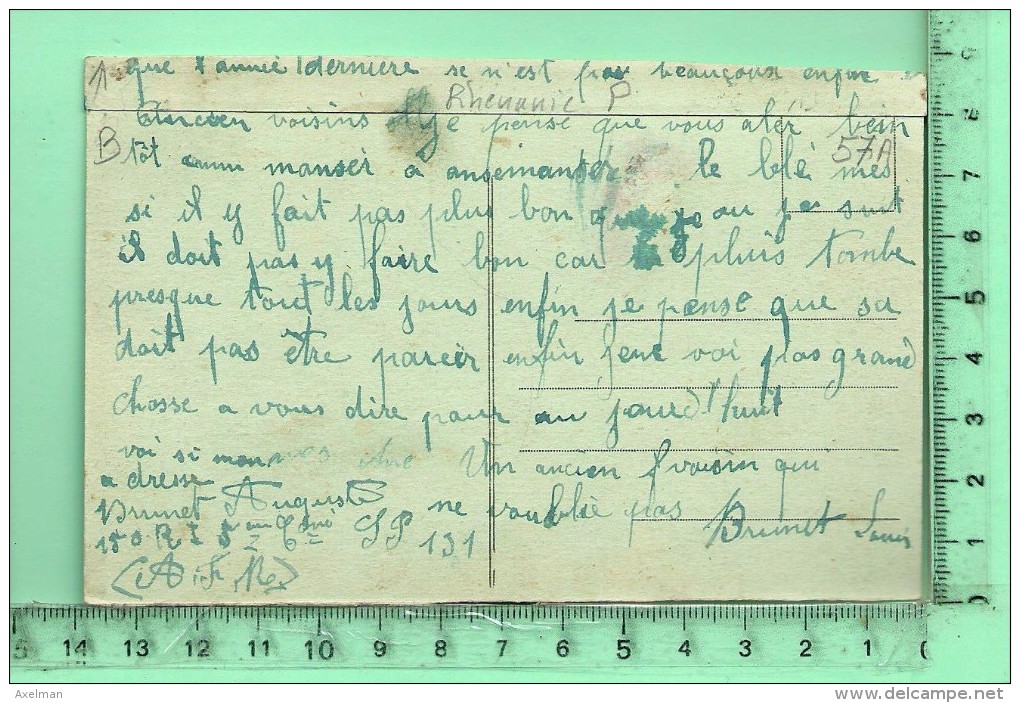 que l'année dernière se n'est pas beaucoux enfin
Rhenanie P
Ancien voisins Je pense que vous alér bein
B
57A
tôt manser a ansemanser le blé mes
si il y fait pas plus bon que ou je suit
il doit pas y faire bon car la pluis tombe
presque tout les jours enfin je pense que sa
doit pas être pareir enfin jene voi pas grand
chosse a vous dire pour au jourd'huit
voi si mon Un ancien voisin qui
a dresse
Brunet Auguste ne vous oublie pas Brunet Louis
150 R I 5 em C nie SP 131
(A. F. R.)
15 14 13 12 11 10 9 8 7 6 5 4 3 2 1 0
9 8 7 6 5 4 3 2 1 0
Axelman
www.delcampe.net